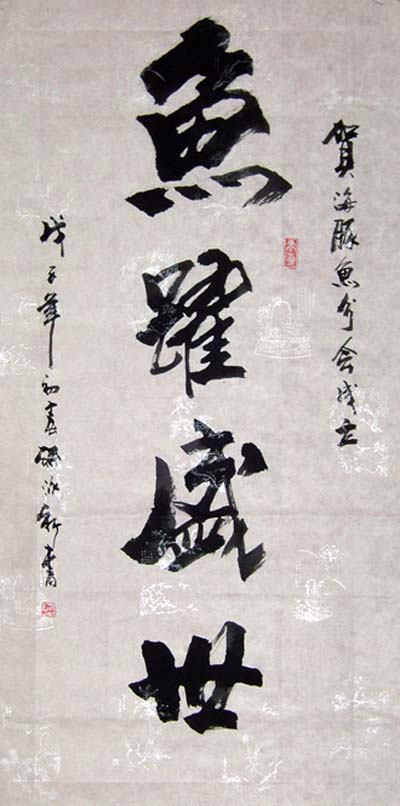 賀海豚魚分会成立
魚躍盛世
戊子年初春 書